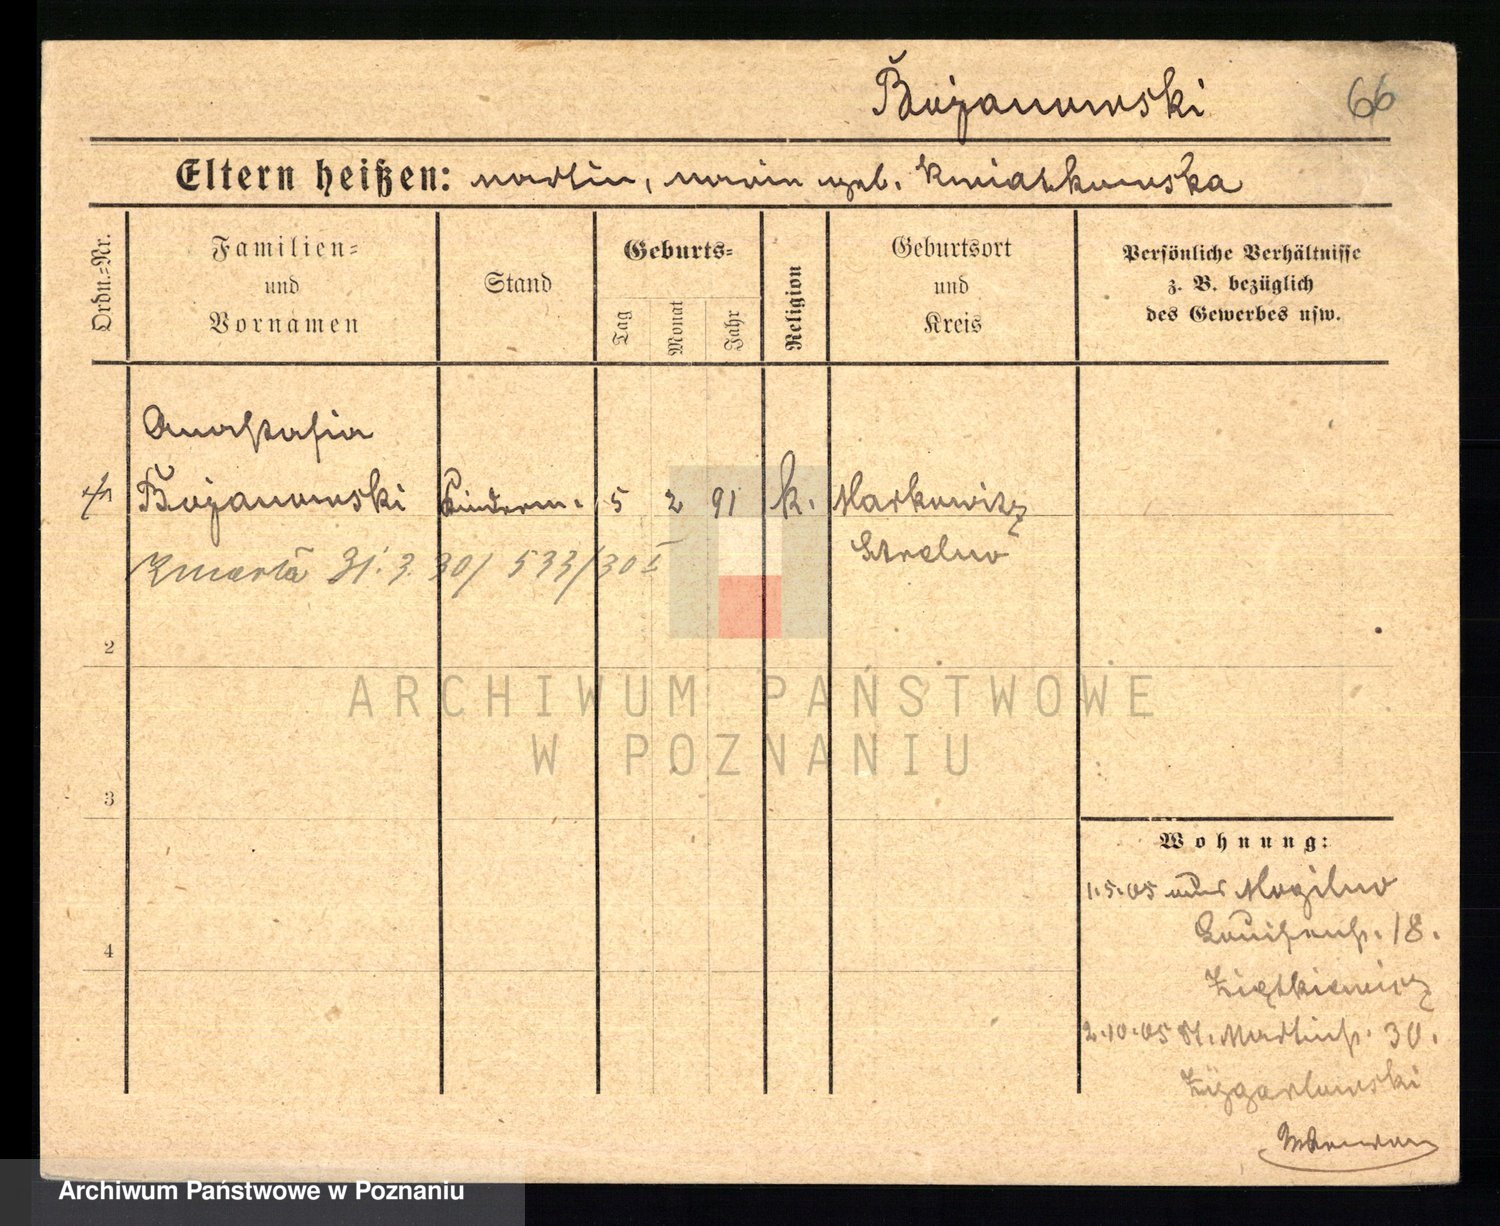 Bojanowski
66
Eltern heißen: Martin, Maria geb. Kwiatkowska
Ordn.-Nr.
Familien-
und
Vornamen
Stand
Geburts-
Tag
Monat
Jahr
Religion
Geburtsort
und
Kreis
Persönliche Verhältnisse
z. B. bezüglich
des Gewerbes usw.
Anastasia
Bojanowski Kinderm. 5 2 91 k. Markowitz
Strelno
Zmarła 31.3.30/ 533/30 I
2
ARCHIWUM PAŃSTWOWE
W POZNANIU
3
Wohnung:
1.5.05 aus Mogilno
Louisenstr. 18.
Ziętkiewicz
4
2.10.05 St. Martinstr. 30.
Zygarlowski
Archiwum Państwowe w Poznaniu